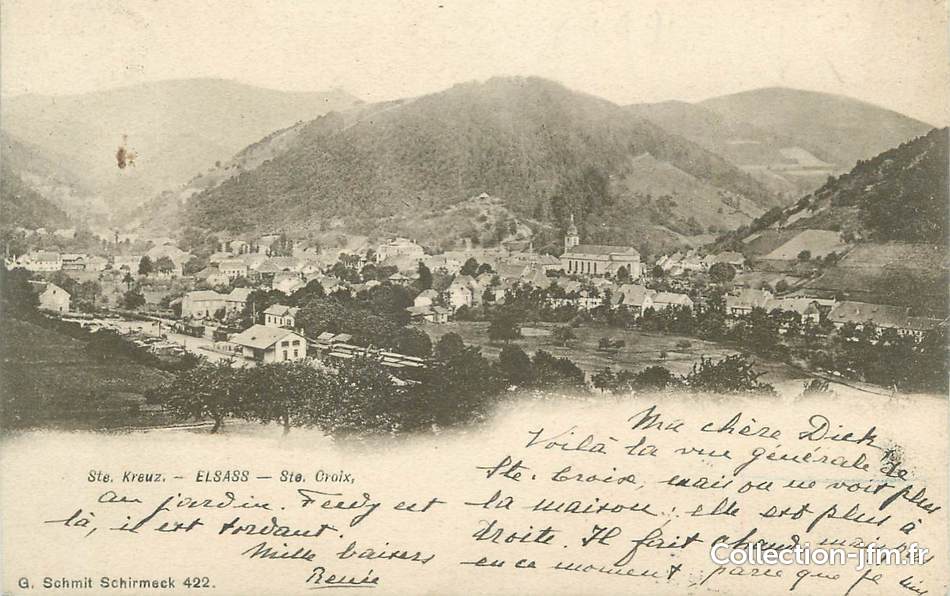 Ma chère Dick,
Voilà la vue générale de
Ste. Croix, mais on ne voit plus
la maison: elle est plus à
droite. Il fait chaud, mais
en ce moment, parce que je
Ste. Kreuz. — ELSASS — Ste. Croix,
au jardin. Fredy est
là, il est tordant.
Mille baisers
Renée
G. Schmit Schirmeck 422.
Collection-jfm.fr